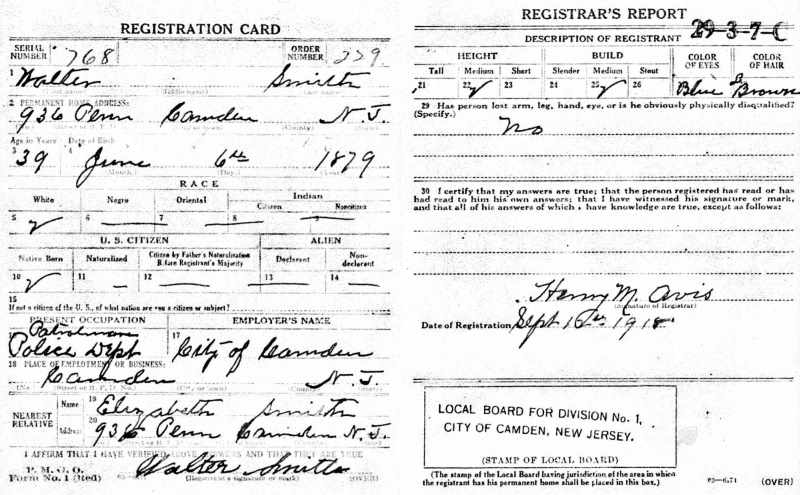 REGISTRATION CARD
SERIAL NUMBER 768 ORDER NUMBER 229
1 Walter Smith
2 PERMANENT HOME ADDRESS:
936 Penn Camden N.J.
Age in Years Date of Birth
3 39 4 June 6th 1879
(Month.) (Day.)
RACE
White Negro Oriental Indian
Citizen Noncitizen
5 6 7 8 9
U. S. CITIZEN ALIEN
Native Born Naturalized Citizen by Father's Naturalization Before Registrant's Majority Declarant Non-declarant
10 11 12 13 14
15
If not a citizen of the U. S., of what nation are you a citizen or subject?
PRESENT OCCUPATION EMPLOYER'S NAME
Patrolman 17
Police Dept City of Camden
18 PLACE OF EMPLOYMENT OR BUSINESS:
Camden N.J.
NEAREST RELATIVE
Name 19 Elizabeth Smith
Address 20 936 Penn Camden N.J.
I AFFIRM THAT I HAVE VERIFIED ABOVE ANSWERS AND THAT THEY ARE TRUE
P. M. G. O.
Form No. 1 (Red) Walter Smith
(Registrant's signature or mark) (OVER)
REGISTRAR'S REPORT
29-3-7-C
DESCRIPTION OF REGISTRANT
HEIGHT BUILD COLOR OF EYES COLOR OF HAIR
Tall Medium Short Slender Medium Stout
21 22 23 24 25 26 Blue Brown
29 Has person lost arm, leg, hand, eye, or is he obviously physically disqualified?
(Specify.)
No
30 I certify that my answers are true; that the person registered has read or has
had read to him his own answers; that I have witnessed his signature or mark,
and that all of his answers of which I have knowledge are true, except as follows:
Henry M. Avis
(Signature of Registrar)
Date of Registration Sept 12th 1918
LOCAL BOARD FOR DIVISION No. 1,
CITY OF CAMDEN, NEW JERSEY.
(STAMP OF LOCAL BOARD)
(The stamp of the Local Board having jurisdiction of the area in which
the registrant has his permanent home shall be placed in this box.)
(OVER)